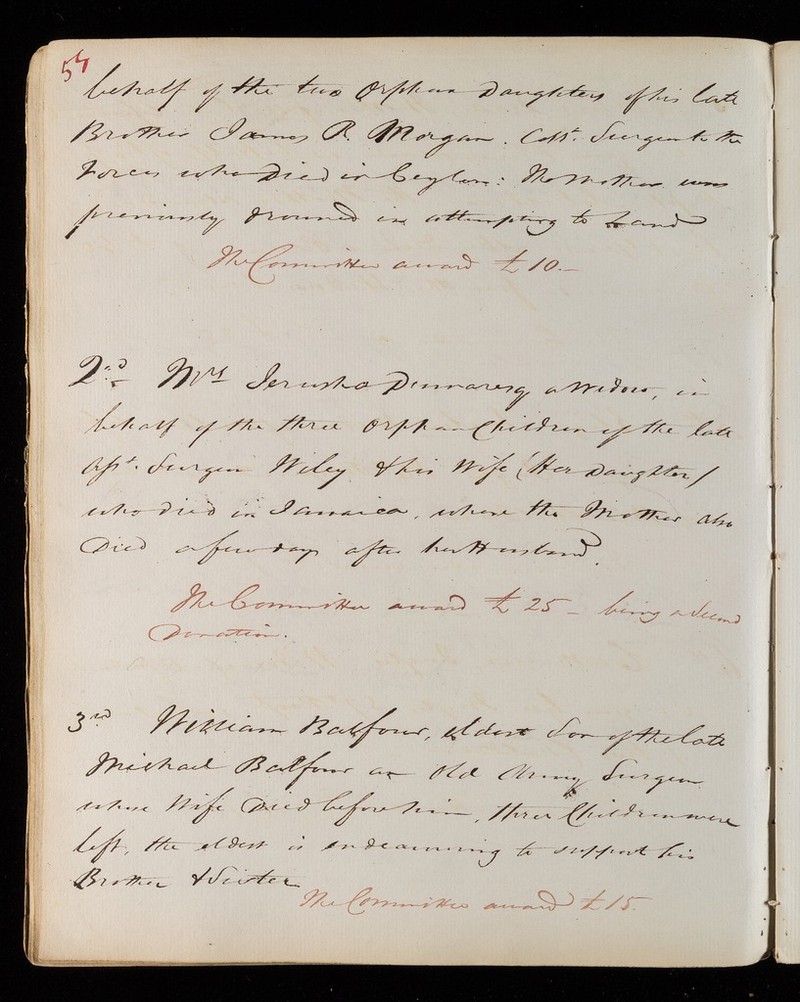 54
behalf of the two Orphan Daughters of his late
Brother James R. Morgan. Asst. Surgeon to the
Forces who Died in Ceylon: The Mother was
previously drowned in attempting to Land
The Committee award £10.—
2nd Mrs Jerusha Dumaresq a Widow, in
behalf of the three Orphan Children of the late
Asst. Surgeon Wiley & his Wife (Her Daughter)
who died in Jamaica, where the Mother also
Died a few days after her Husband.
The Committee award £25 – being a Second
Donation.
3rd William Balfour, eldest Son of the late
Michael Balfour an Old Army Surgeon
whose Wife Died before him, three Children were
left, the eldest is endeavouring to support his
Brother & Sister
The Committee award £15.